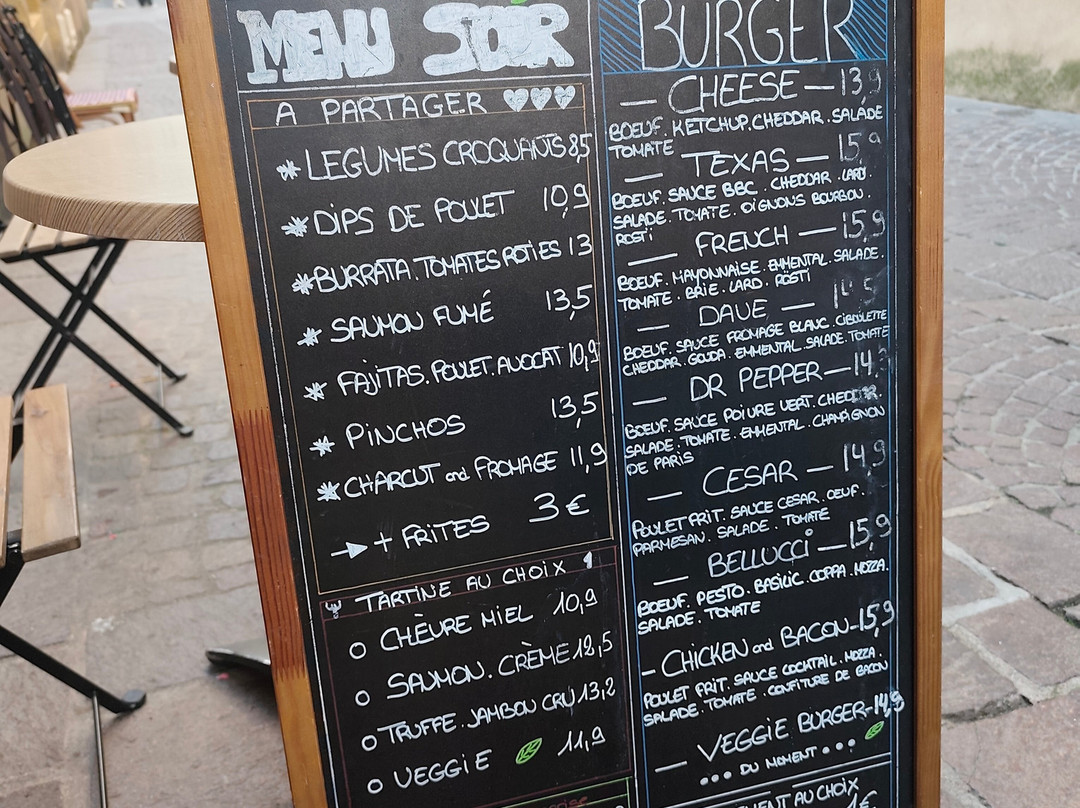 MENU SOIR
A PARTAGER
LEGUMES CROQUANTS 8,5
DIPS DE POULET 10,9
BURRATA.TOMATES ROTIES 13
SAUMON FUMÉ 13,5
FAJITAS.POULET.AVOCAT 10,9
PINCHOS 13,5
CHARCUT and FROMAGE 11,9
→ + FRITES 3€
TARTINE AU CHOIX
CHÈVRE MIEL 10,9
SAUMON. CRÈME 12,5
TRUFFE.JAMBON CRU 13,2
VEGGIE 11,9
BURGER
— CHEESE — 13,9
BOEUF. KETCHUP.CHEDDAR.SALADE
TOMATE
— TEXAS — 15,9
BOEUF. SAUCE BBC. CHEDDAR.LARD.
SALADE.TOMATE.OIGNONS BOURBON.
ROSTI
— FRENCH — 15,9
BOEUF. MAYONNAISE.EMMENTAL.SALADE.
TOMATE.BRIE.LARD.RÖSTI
— DAVE —
BOEUF.SAUCE FROMAGE BLANC.CIBOULETTE
CHEDDAR.GOUDA.EMMENTAL.SALADE.TOMATE
— DR PEPPER — 14,
BOEUF.SAUCE POIVRE VERT.CHEDDAR.
SALADE.TOMATE.EMMENTAL.CHAMPIGNON
DE PARIS
— CESAR — 14,9
POULET FRIT.SAUCE CESAR.OEUF.
PARMESAN.SALADE.TOMATE
— BELLUCCI — 15,9
BOEUF.PESTO.BASILIC.COPPA.MOZZA.
SALADE.TOMATE
- CHICKEN and BACON - 15,9
POULET FRIT.SAUCE COCKTAIL.MOZZA.
SALADE.TOMATE.CONFITURE DE BACON
— VEGGIE BURGER - 14,9
... DU MOMENT ...
MENT AU CHOIX
1€